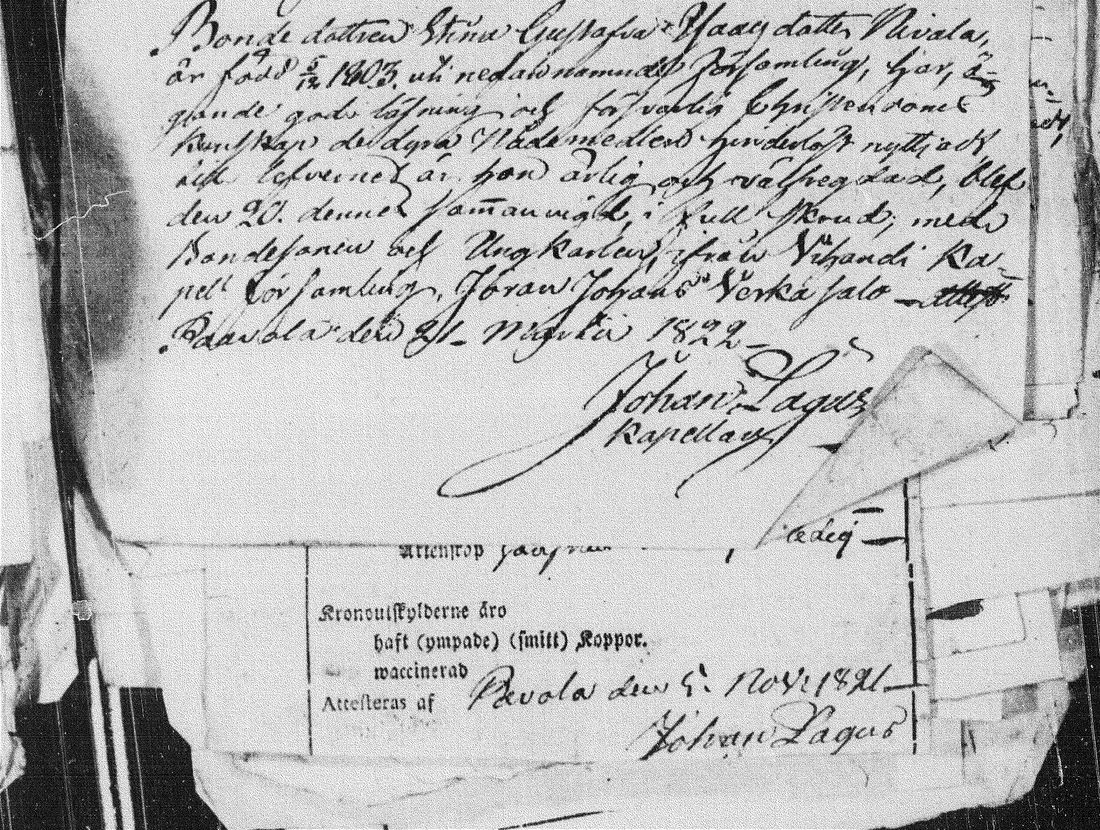 Bonde dottren Stina Gustafva Isaacs dotter Nivala,
är född 5/12 1803. uti nedannamnde församling, har, ä-
gande god läsning och försvarlig Christendoms
kunskap de dyra Nådemedlen hinderlöst nyttjadt
till lefvernet är hon ärlig och välfregdad, blef
den 20. dennes sam̄anvigd, i full skrud, med
Bondesonen och Ungkarlen, ifrån Vihandi Ka-
pell församling, Jöran Johans Verkasalo
Paavola den 21 Martii 1822
Johan Lagus
Kapellan
ledig
Kronoutskylderne äro
haft (ympade) (smitt) Koppor.
waccinerad
Attesteras af Pavola den 5. Nov: 1821
Johan Lagus